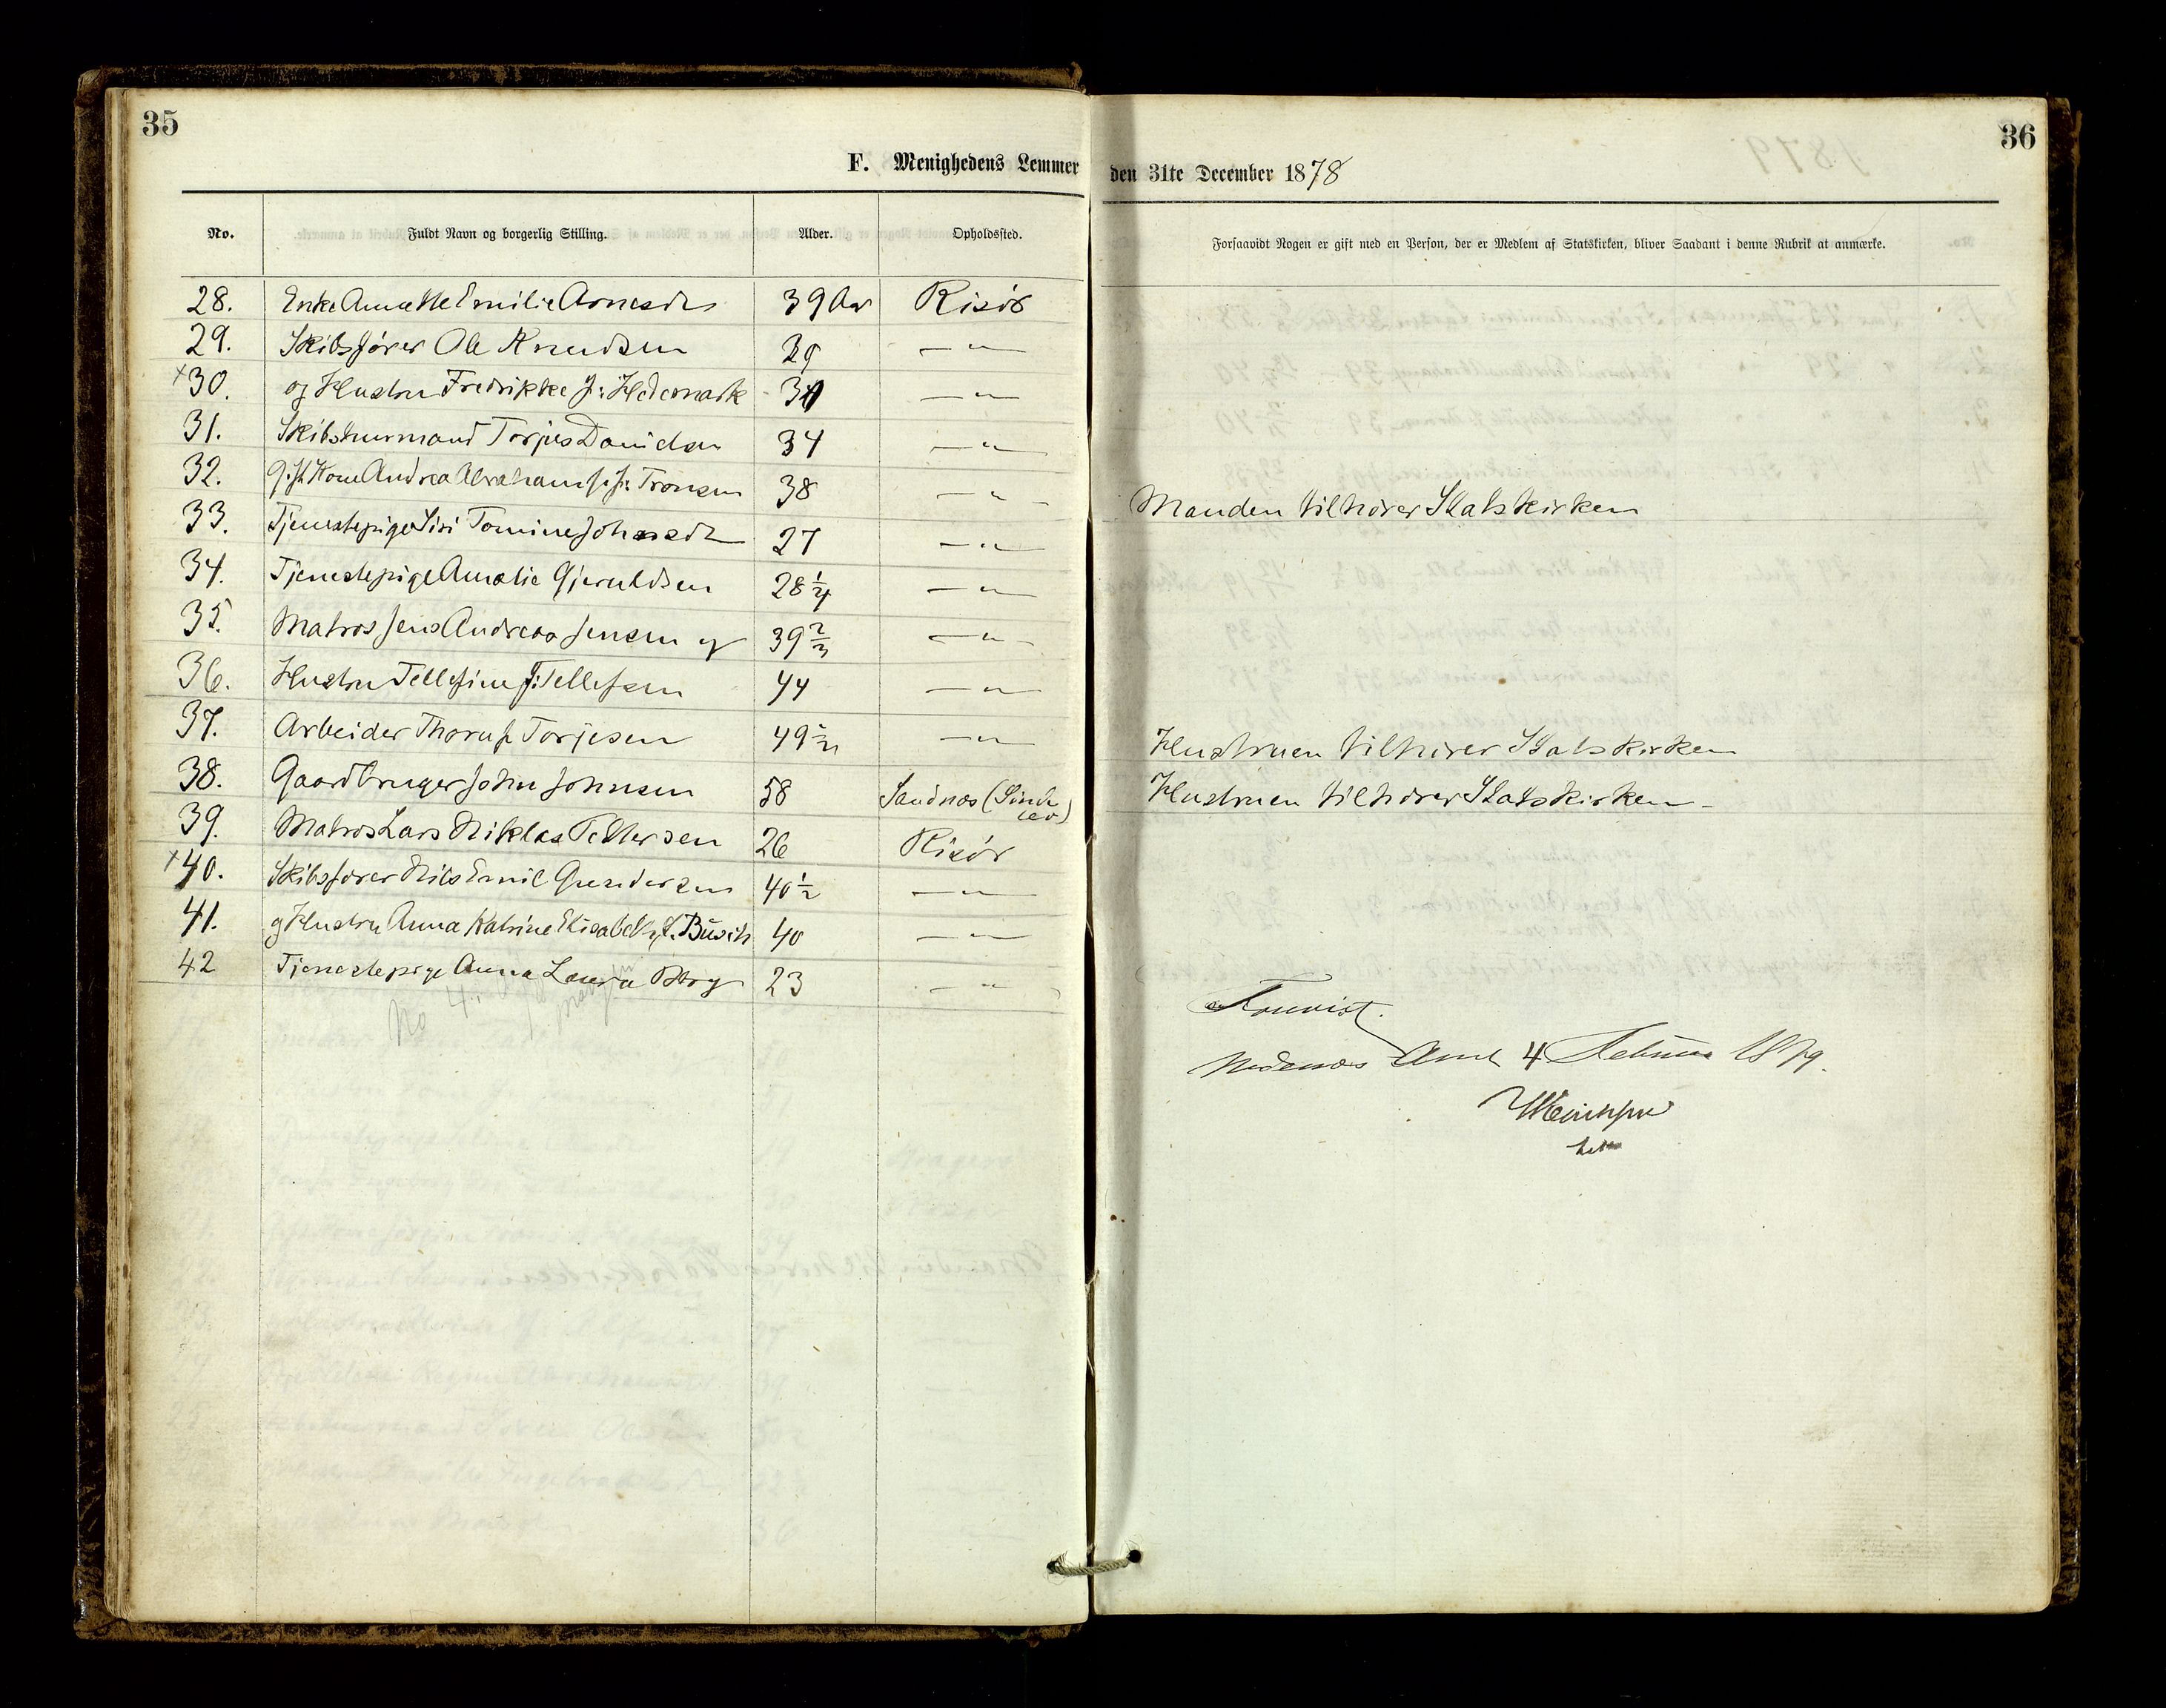 35
36
F. Menighedens Lemmer den 31te December 1878
No. Fuldt Navn og borgerlig Stilling. Alder. Opholdssted. Forsaavidt Nogen er gift med en Person, der er Medlem af Statskirken, bliver Saadant i denne Rubrik at anmærke.
28. Enke Annette Emilie Arnesdr 39 Aar Risör
29. Skibsfører Ole Knudsen 39 —"—
+30. og Hustru Fredrikke f: Hedemark —"—
31. Skibstømmermand Torjus Danielsen 34 —"—
32. Gift Kone Andrea Abrahamse f: Tronsen 38 —"— Manden tilhører Statskirken
33. Tjenestepige Siri Tomine Johnsdr 27 —"—
34. Tjenestepige Amalie Gjeruldsen 28 1/4 —"—
35. Matros Jens Andreas Jensen og 39 2/3 —"—
36. Hustru Tellefine f: Tellefsen 44 —"—
37. Arbeider Torjesen 49 1/2 —"— Hustruen tilhører Statskirken
38. Gaardbruger John Johnsen 58 Sandnæs (Sønde- Hustruen tilhører Statskirken —
løv)
39. Matros Lars Niklas Pettersen 26 Risör
+40. Skibsfører Nils Emil Gundersen 40 1/2 —"—
41. og Hustru Anna Katrine Elisabeth f. Busch 40 —"—
42 Tjenestepige Anna Laura Berg 23 —"—
No 4
Nedenæs Amt 4 Februar 1879.